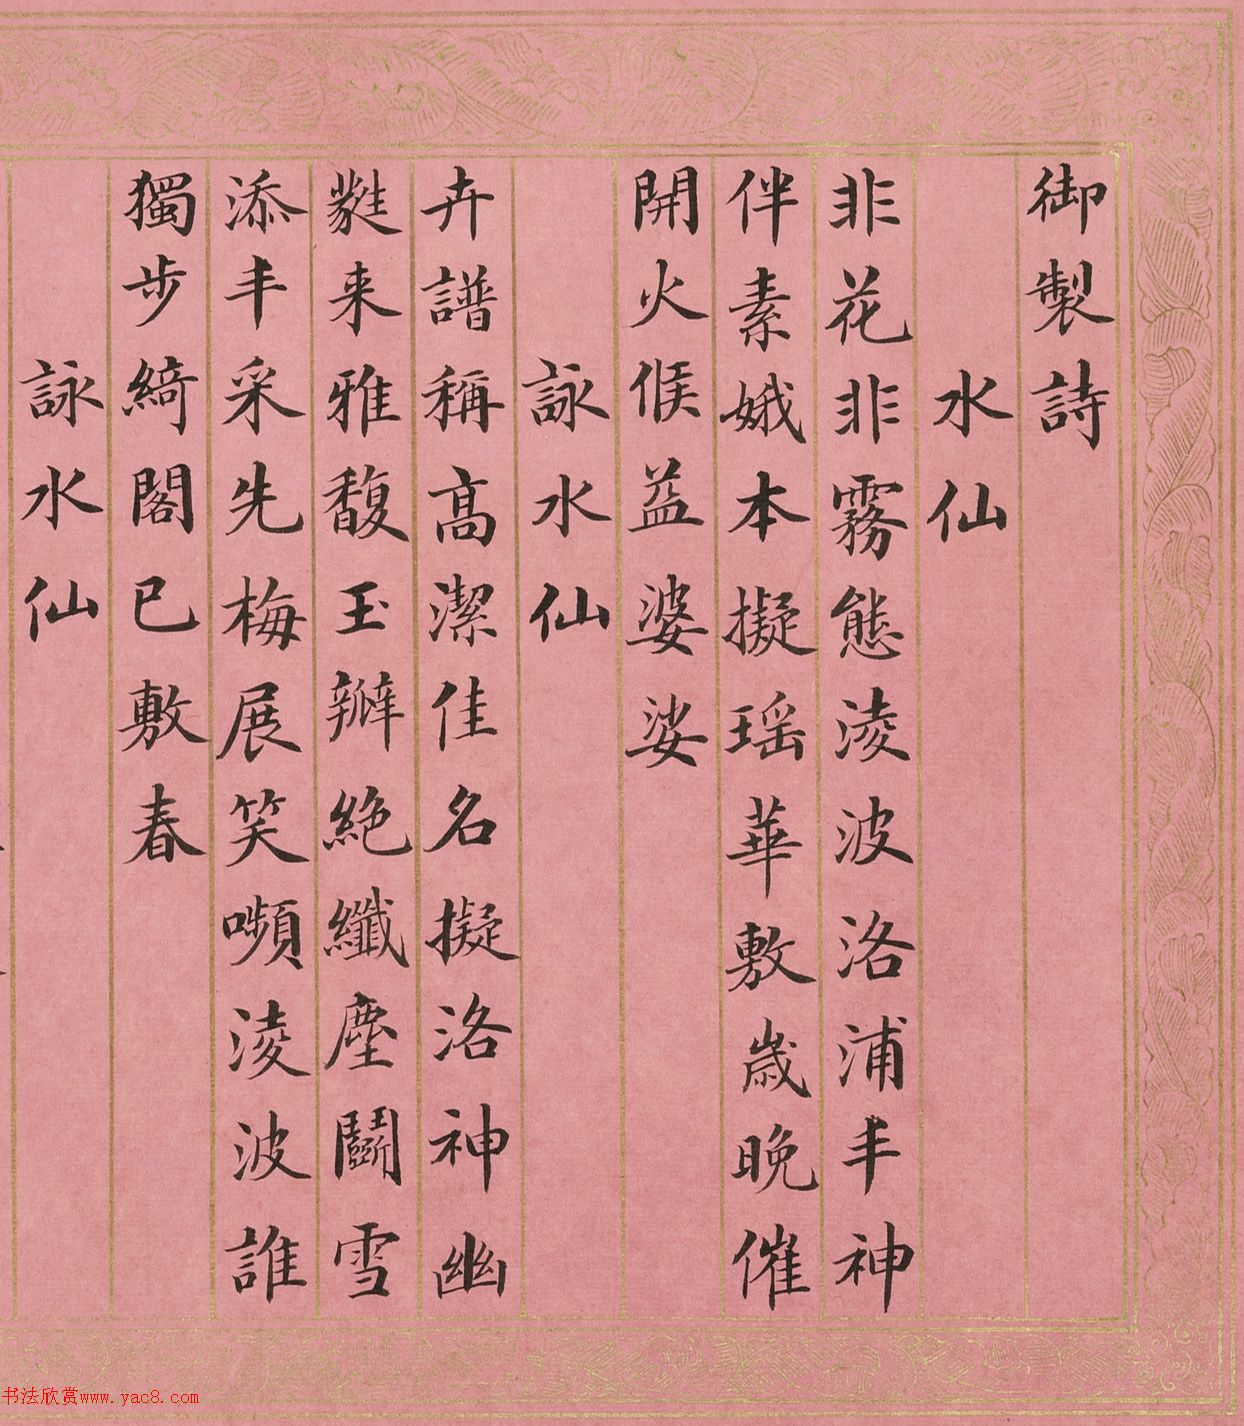 御製詩
水仙
非花非霧態淩波洛浦丰神
伴素娥本擬瑶華敷歲晚催
開火候益婆娑
詠水仙
卉譜稱高潔佳名擬洛神幽
蕤来雅馥玉瓣絶纖塵鬭雪
添丰采先梅展笑嚬淩波誰
獨步綺閣已敷春
詠水仙
书法欣赏www.yac8.com